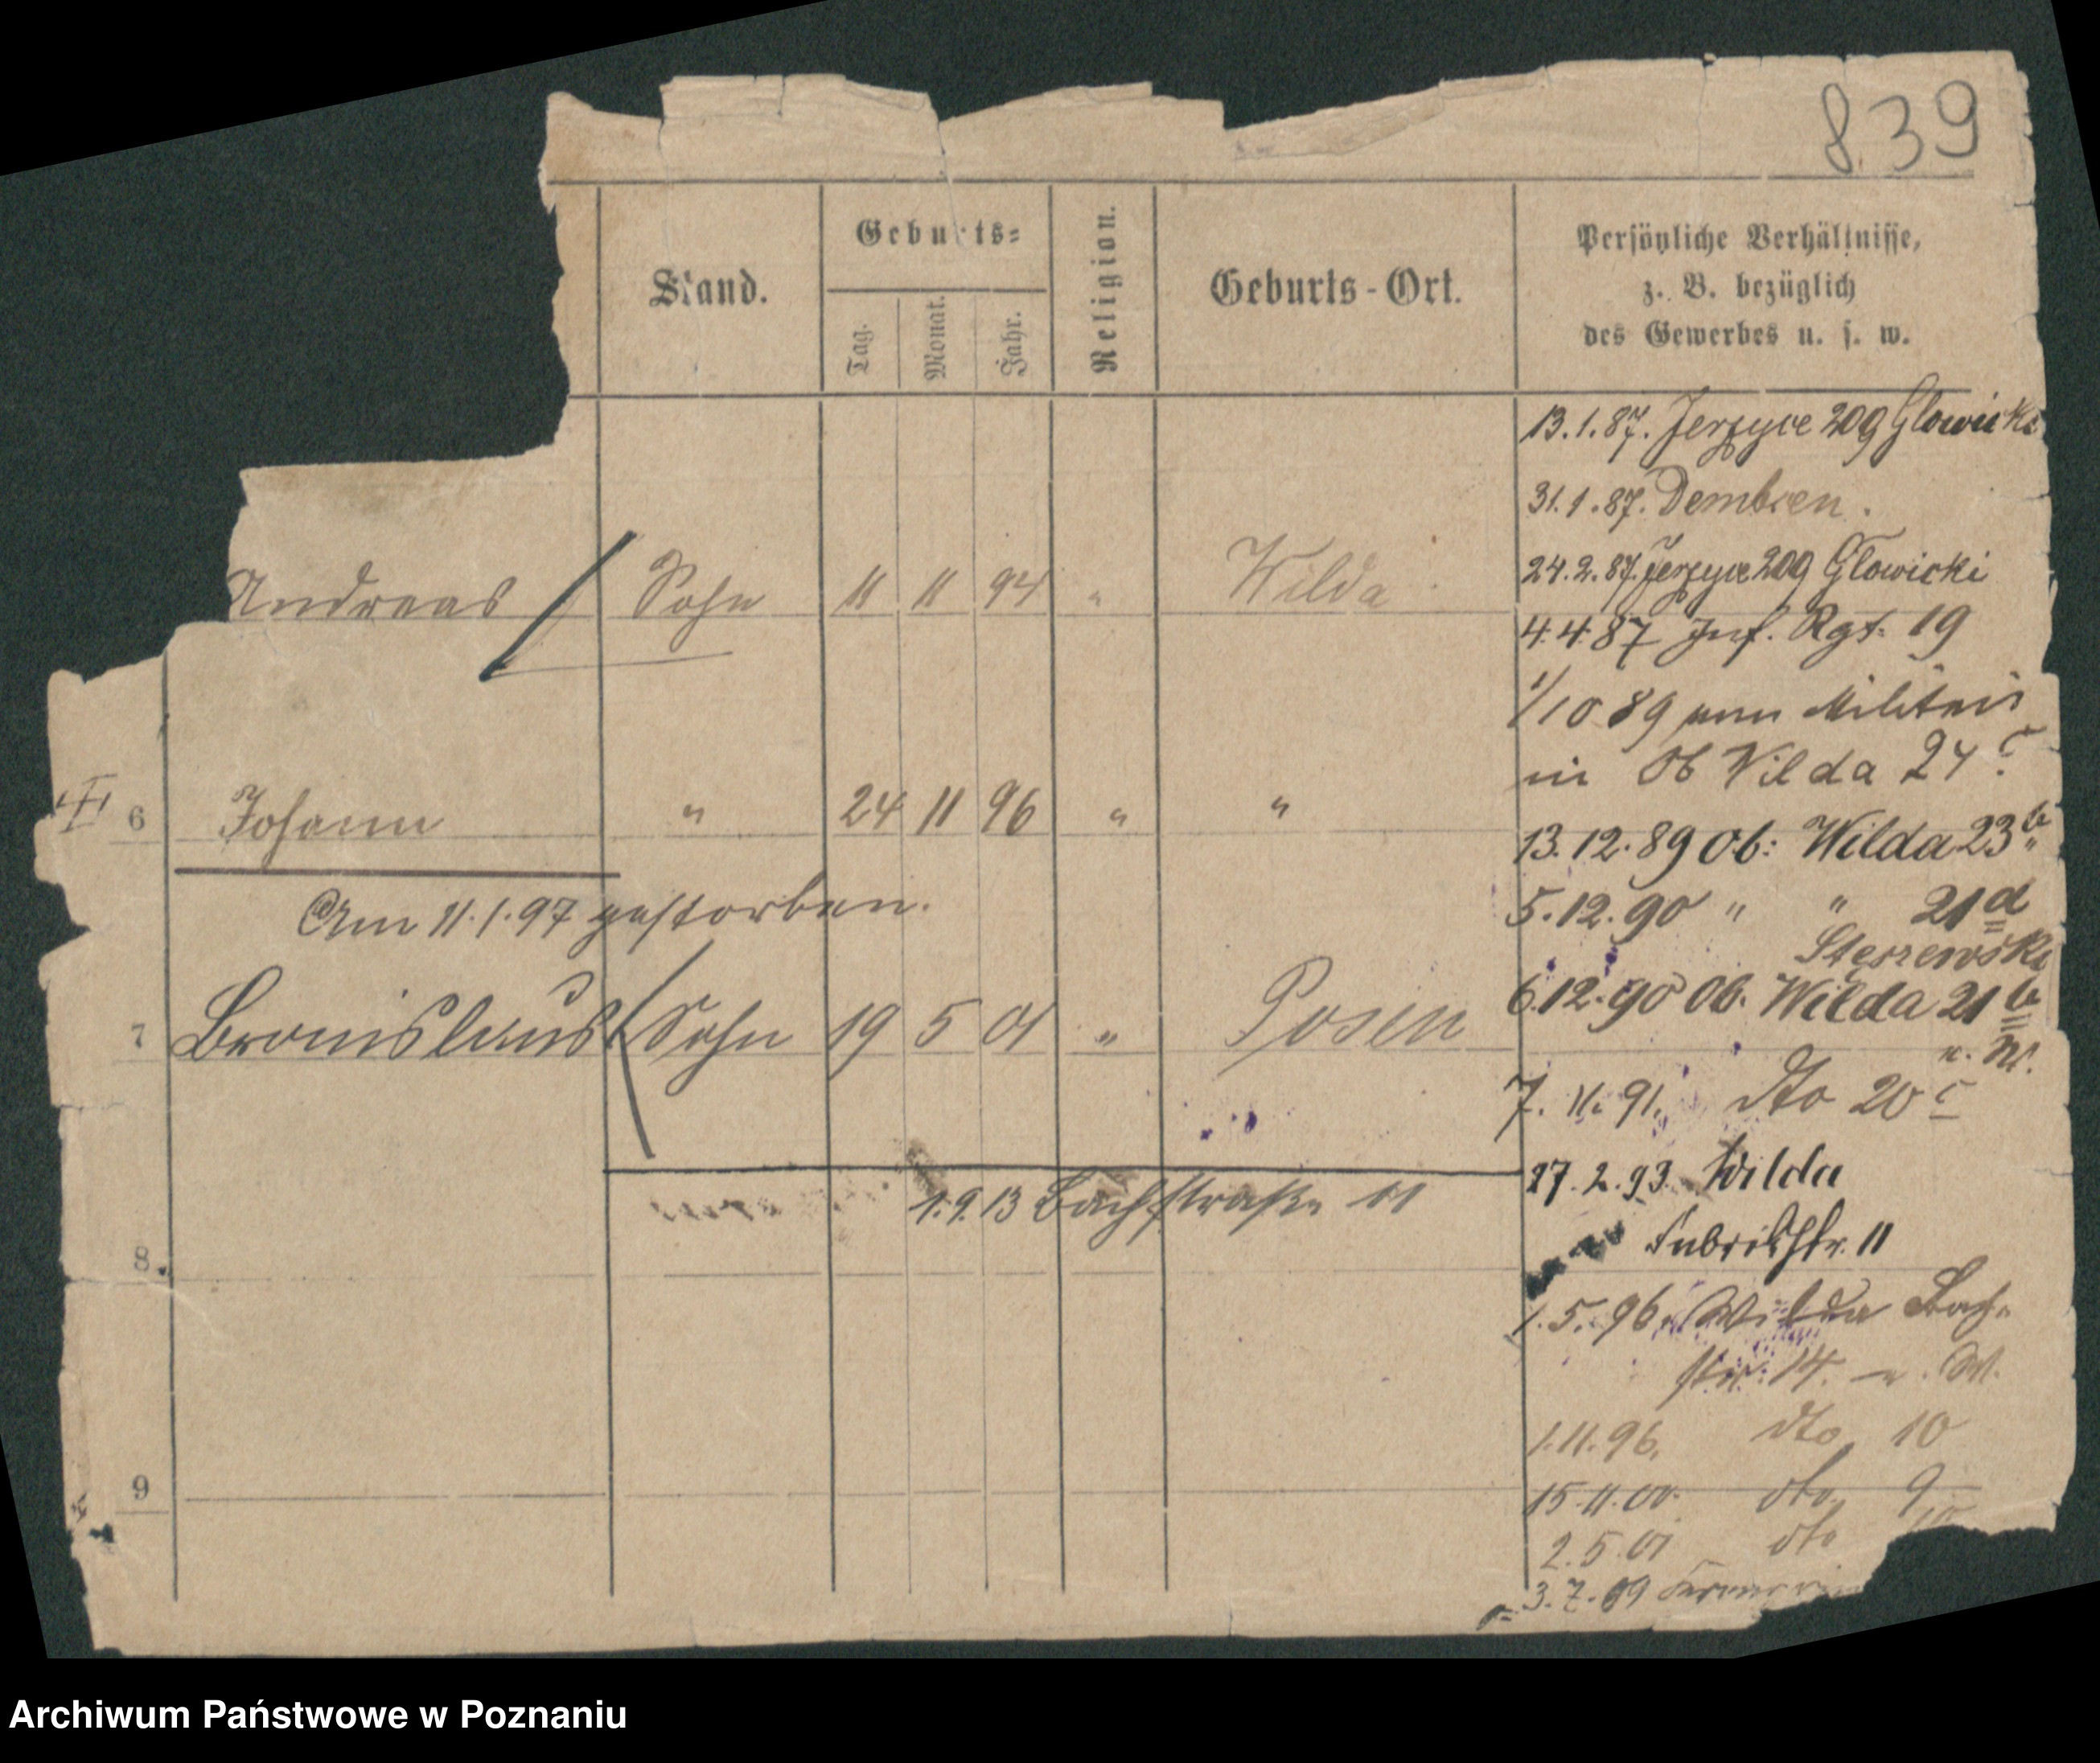 839
Stand.
Geburts=
Tag.
Monat.
Jahr.
Religion.
Geburts-Ort.
Persönliche Verhältnisse,
z. B. bezüglich
des Gewerbes u. s. w.
Andreas Sohn 11 11 94 " Wilda
6 Johann " 24 11 96 " "
Am 11.1.97 gestorben.
7 Bronislaus Sohn 19 5 01 " Posen
1.9.13 Bachstraße 11
8
9
13.1.87. Jerzyce 209 Glowicki
31.1.87. Dembsen.
24.2.87. Jerzyce 209 Glowicki
4.4.87 Inf. Rgt. 19
1/10 89 vom Militair
in Ob Wilda 24 c
13.12.89 Ob: Wilda 23 b
5.12.90 " " 21 d
Steszewski
6.12.90 Ob. Wilda 21 b
u. W.
7.11.91. dto 20 c
27.2.93. Wilda
Fabrikstr. 11
1.5.96. Wilda Bach
str. 14. u. W.
1.11.96. dto 10
15.11.00. dto 9
2.5.01 dto 10
3.7.09
Archiwum Państwowe w Poznaniu